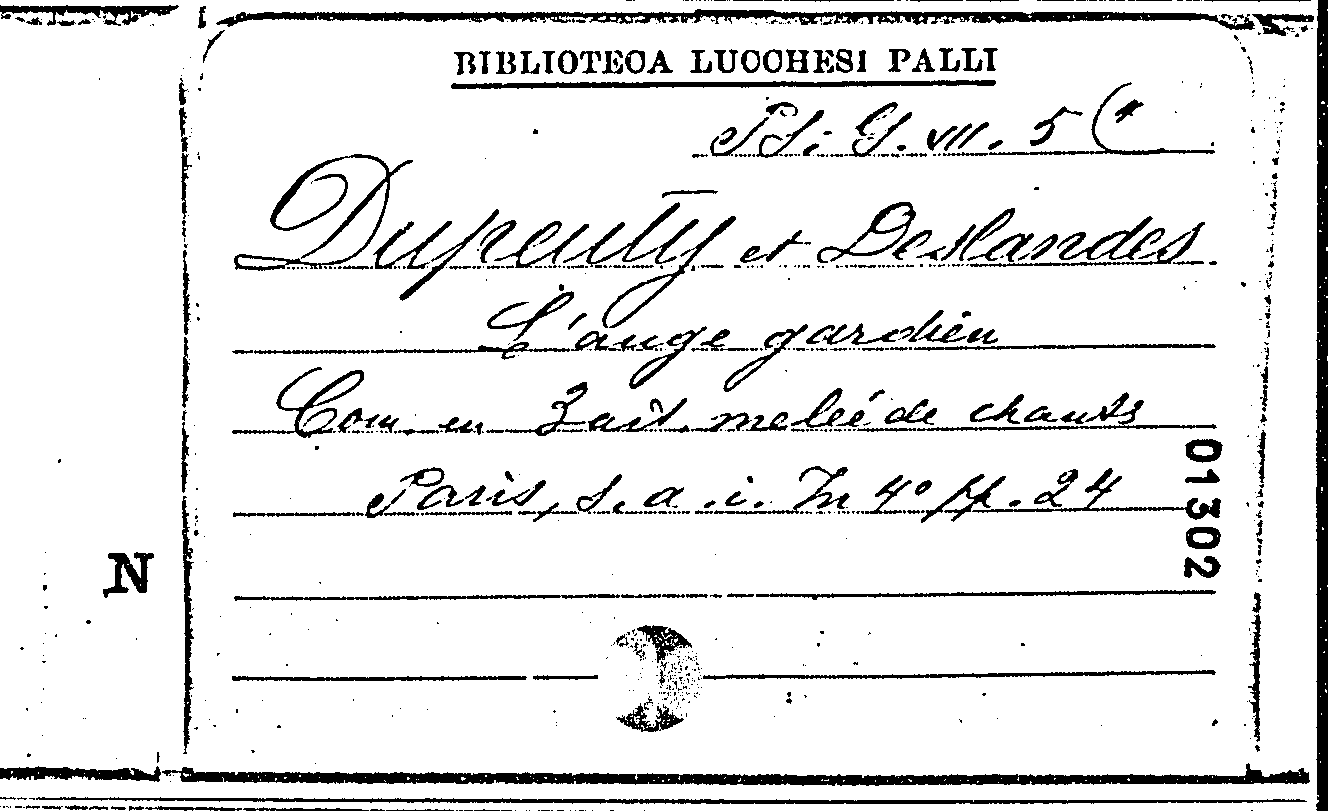 BIBLIOTECA LUCCHESI PALLI
Pt: G. VII. 5 (*
Dupeuty et Deslandes
L'ange gardien
Com. en 3 act. meleé de chants
Paris, s. a. i. In 4° pp. 24
01302
N